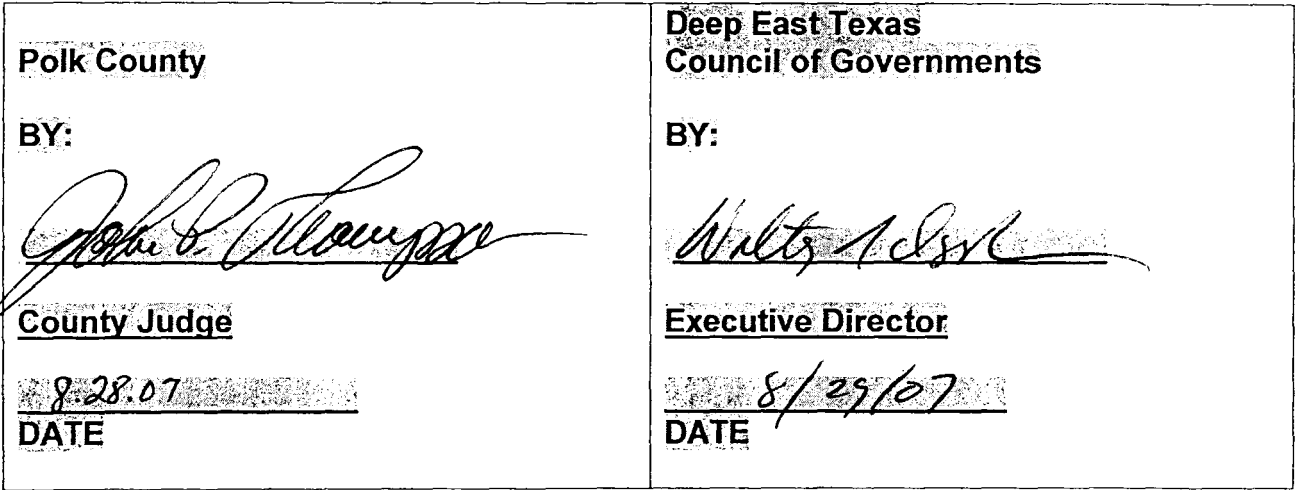 Polk County
BY:
John P. Thompson
County Judge
8.28.07
DATE
Deep East Texas
Council of Governments
BY:
Walter
Executive Director
8/29/07
DATE